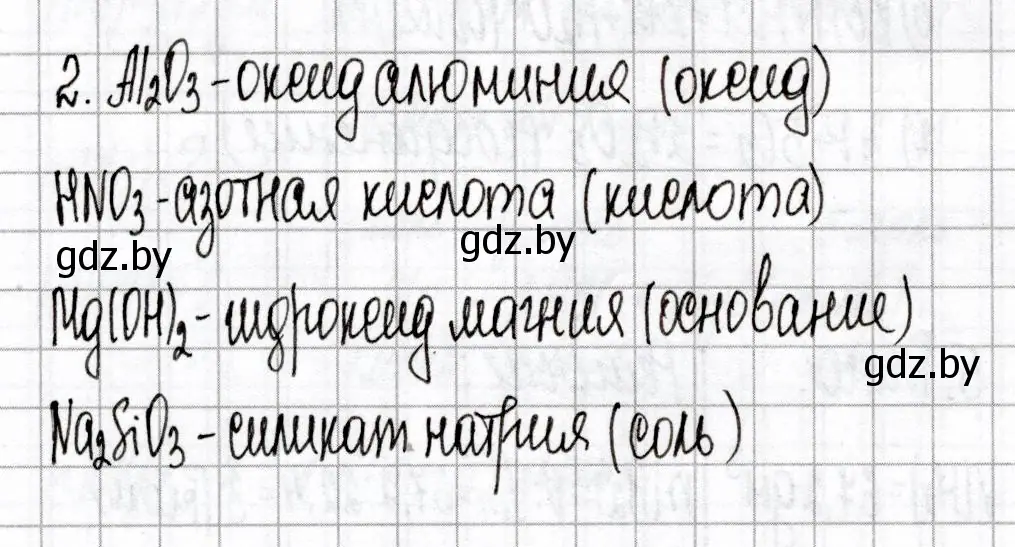 2. Al₂O₃ - оксид алюминия (оксид)
HNO₃ - азотная кислота (кислота)
gdz.by gdz.by
Mg(OH)₂ - гидроксид магния (основание)
gdz.by
Na₂SiO₃ - силикат натрия (соль)